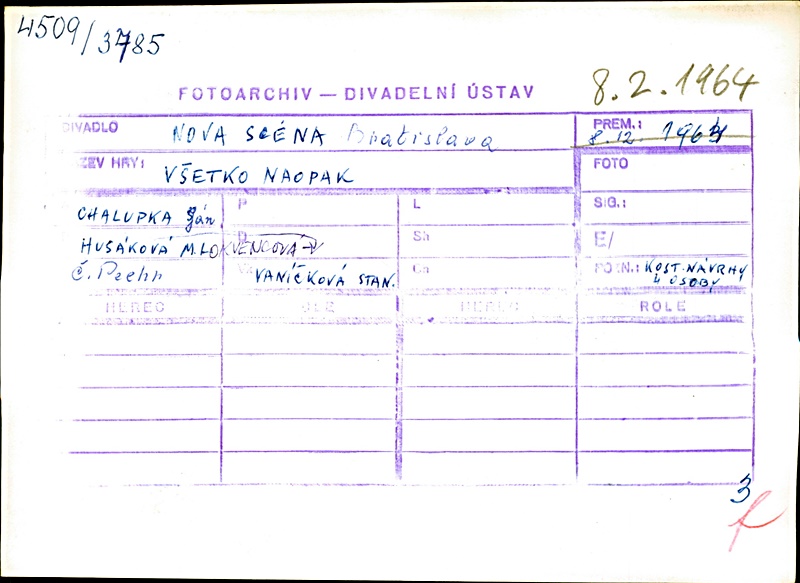 4509/3785
FOTOARCHIV — DIVADELNÍ ÚSTAV
8.2.1964
DIVADLO NOVA SCÉNA Bratislava
PREM.: 8.12. 1963
ZEV HRY: VŠETKO NAOPAK
FOTO
CHALUPKA Ján
P
L
SIG.:
HUSÁKOVÁ M. LOKVENCOVÁ
D
Sh
E/
Č. Pechr
VANÍČKOVÁ STAN.
Cn
POZN.: KOST. NÁVRHY
OSOBY
HEREC
ROLE
HEREC
ROLE
3